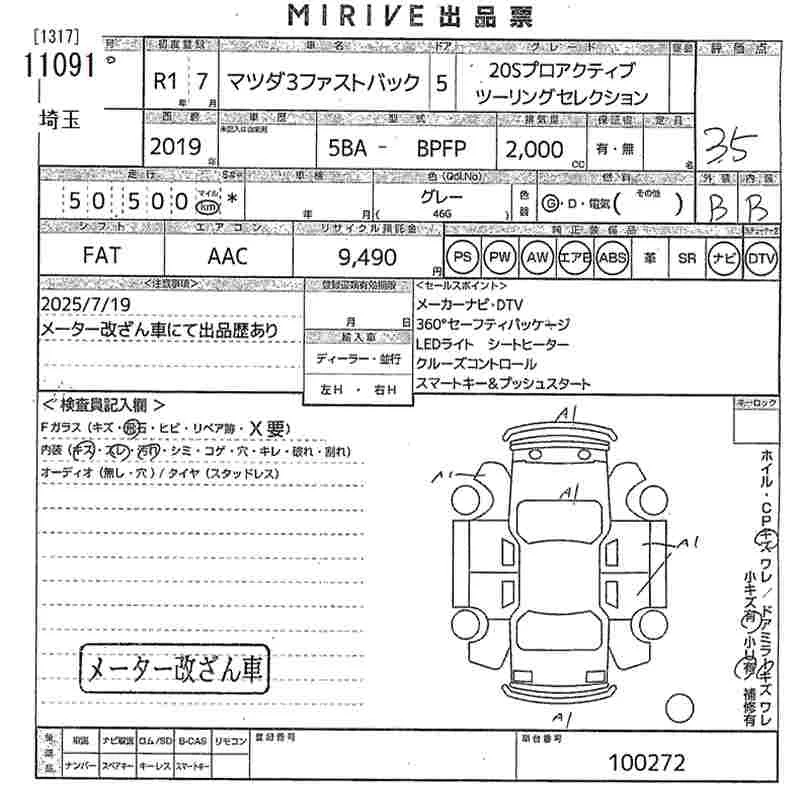 MIRIVE出品票
[1317]
11091
埼玉
初度登録 車名 ドア グレード 評価点
R1 年 7 月 マツダ3ファストバック 5 20Sプロアクティブ
ツーリングセレクション
西暦 車歴 型式 排気量 保証書 定員
2019 年 未記入は自家用 5BA - BPFP 2,000 CC 有・無 名 3.5
走行 車検 色(Col.No) 燃料 外装 内装
50,500 マイル km * 年 月( グレー 46G ) 色替 G・D・電気( その他 ) B B
シフト エアコン リサイクル預託金 純正装備品
FAT AAC 9,490 円 PS PW AW エアB ABS 革 SR ナビ DTV
<注意事項> 登録書類有効期限 <セールスポイント>
2025/7/19 メーカーナビ・DTV
メーター改ざん車にて出品歴あり 月 日 360°セーフティパッケージ
輸入車 LEDライト シートヒーター
ディーラー・並行 クルーズコントロール
左H ・ 右H スマートキー&プッシュスタート
<検査員記入欄> キーロック
Fガラス(キズ・飛石・ヒビ・リペア跡・X要)
内装(キズ・スレ・汚れ・シミ・コゲ・穴・キレ・破れ・割れ)
オーディオ(無し・穴)/タイヤ(スタッドレス)
A1
A1
A1
A1
A1
ホイル・CPキズ ワレ / ドアミラーキズ ワレ
小キズ有 小U有 補修有
メーター改ざん車
後送品 取説 ナビ取説 ロム/SD B-CAS リモコン 登録番号 車台番号
ナンバー スペアキー キーレス スマートキー 100272